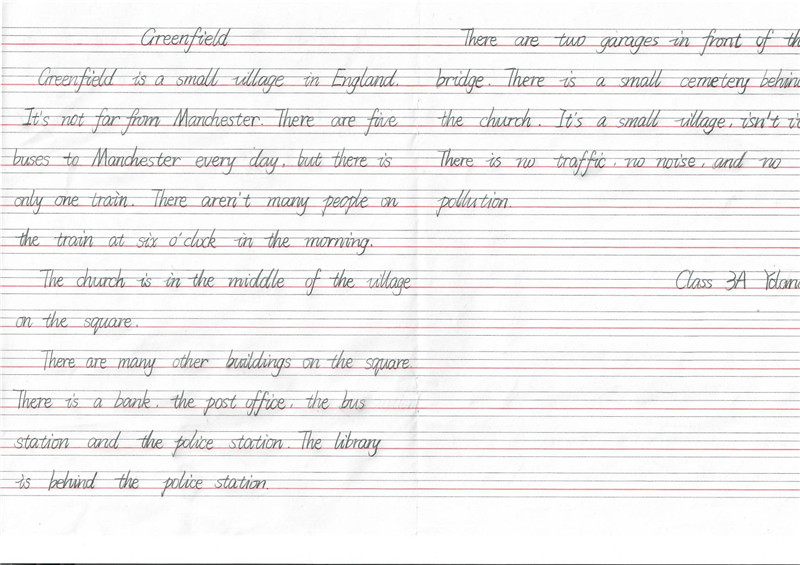 Greenfield
Greenfield is a small village in England.
It's not far from Manchester. There are five
buses to Manchester every day, but there is
only one train. There aren't many people on
the train at six o'clock in the morning.
The church is in the middle of the village
on the square.
There are many other buildings on the square.
There is a bank, the post office, the bus
station and the police station. The library
is behind the police station.
There are two garages in front of th
bridge. There is a small cemetery behind
the church. It's a small village, isn't it
There is no traffic, no noise, and no
pollution.
Class 3A